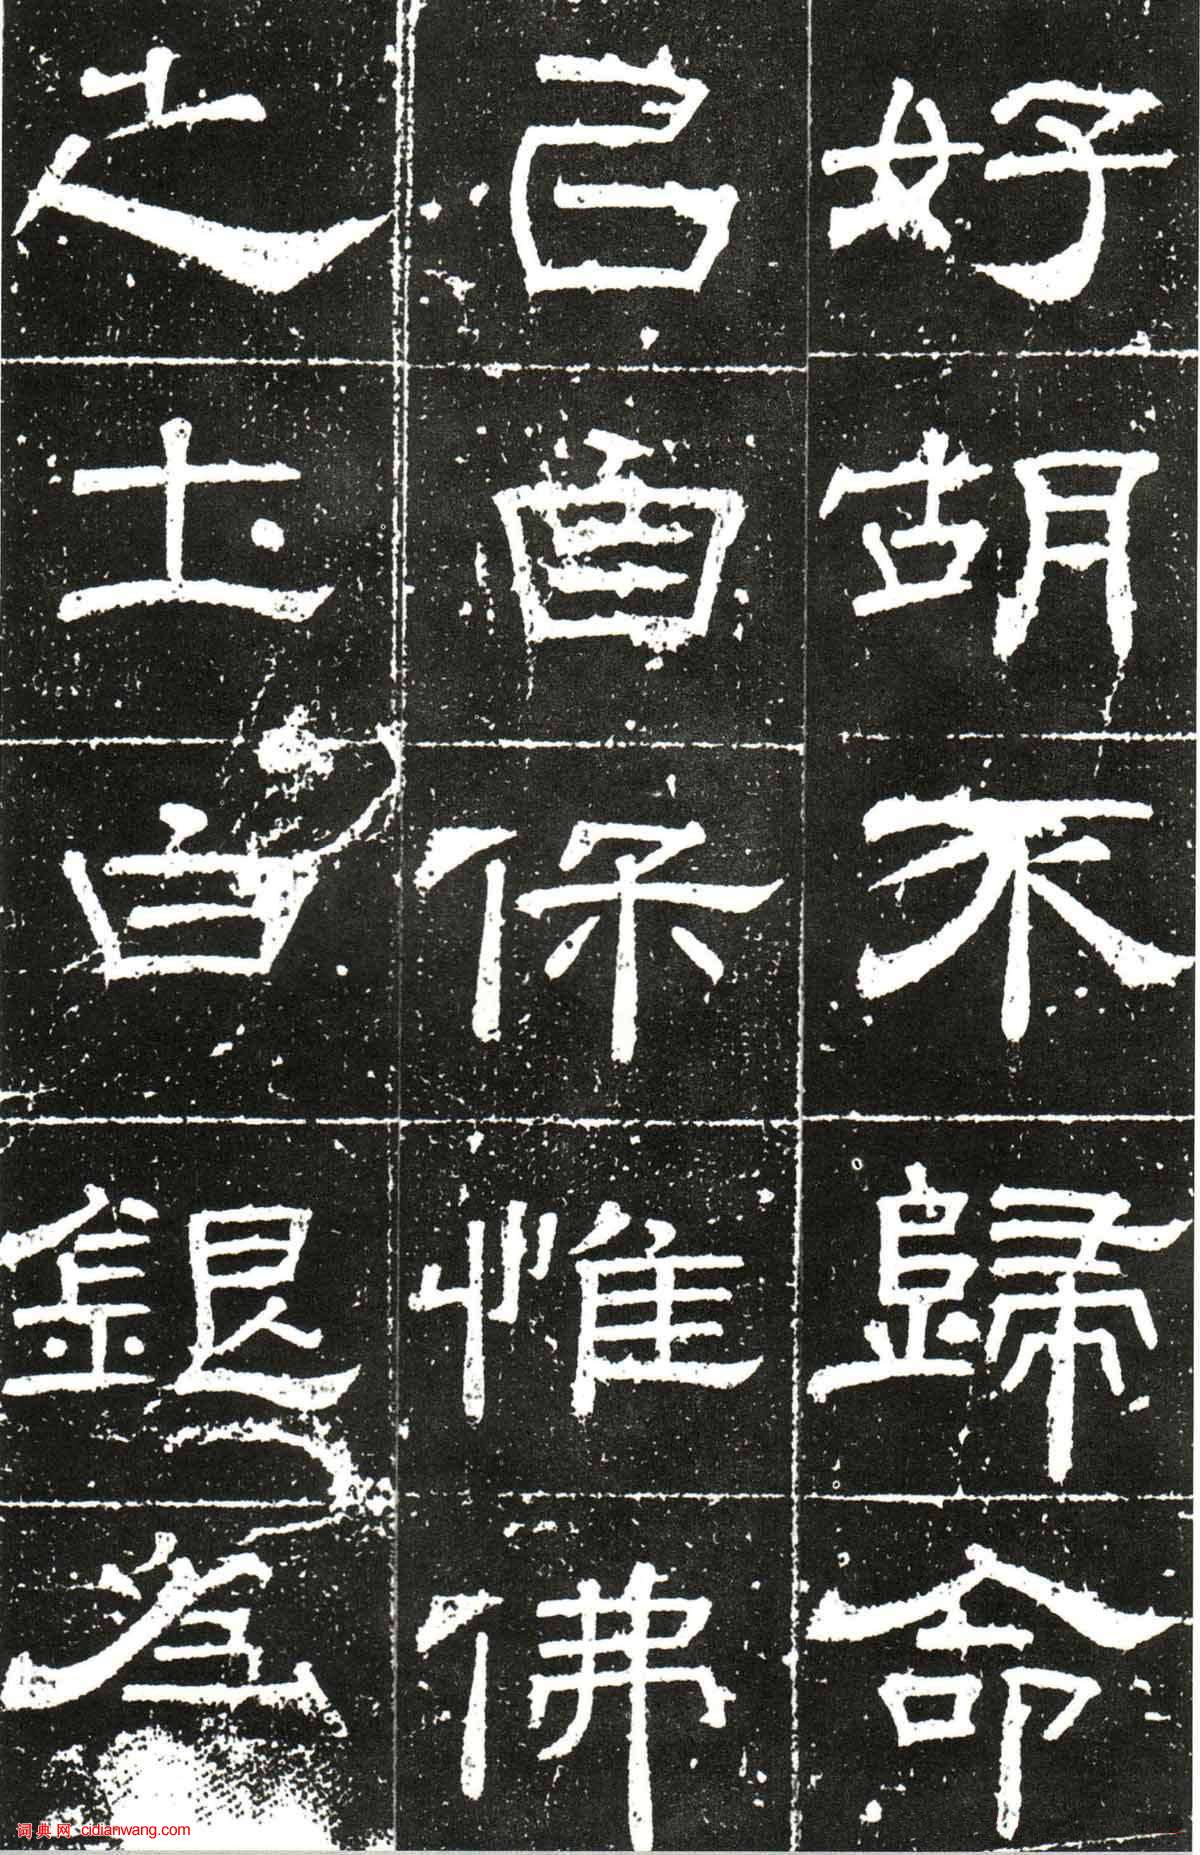 好胡不歸命
己自保惟佛
之土白銀為
词典网 cidianwang.com